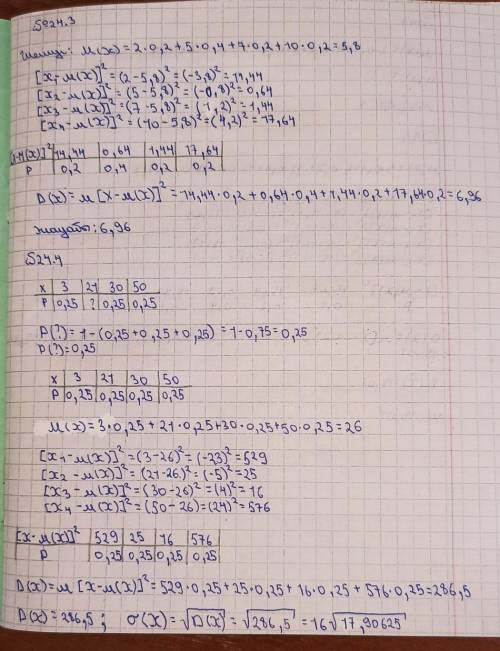 №24.3
Шешуі: M(x)=2·0,2+5·0,4+7·0,2+10·0,2=5,8
[x₁-M(x)]²=(2-5,8)²=(-3,8)²=14,44
[x₂-M(x)]²=(5-5,8)²=(-0,8)²=0,64
[x₃-M(x)]²=(7-5,8)²=(1,2)²=1,44
[x₄-M(x)]²=(10-5,8)²=(4,2)²=17,64
[x-M(x)]² 14,44 0,64 1,44 17,64
P 0,2 0,4 0,2 0,2
D(x)=M[x-M(x)]²=14,44·0,2+0,64·0,4+1,44·0,2+17,64·0,2=6,96
Жауабы: 6,96
№24.4
x 3 21 30 50
P 0,25 ? 0,25 0,25
P(?)=1-(0,25+0,25+0,25)=1-0,75=0,25
P(?)=0,25
x 3 21 30 50
P 0,25 0,25 0,25 0,25
M(x)=3·0,25+21·0,25+30·0,25+50·0,25=26
[x₁-M(x)]²=(3-26)²=(-23)²=529
[x₂-M(x)]²=(21-26)²=(-5)²=25
[x₃-M(x)]²=(30-26)²=(4)²=16
[x₄-M(x)]²=(50-26)=(24)²=576
[x-M(x)]² 529 25 16 576
P 0,25 0,25 0,25 0,25
D(x)=M[x-M(x)]²=529·0,25+25·0,25+16·0,25+576·0,25=286,5
D(x)=286,5; σ(x)=√D(x)=√286,5=16√17,90625